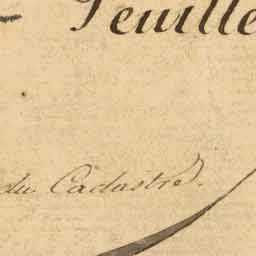 Feuille
du Cadastre.